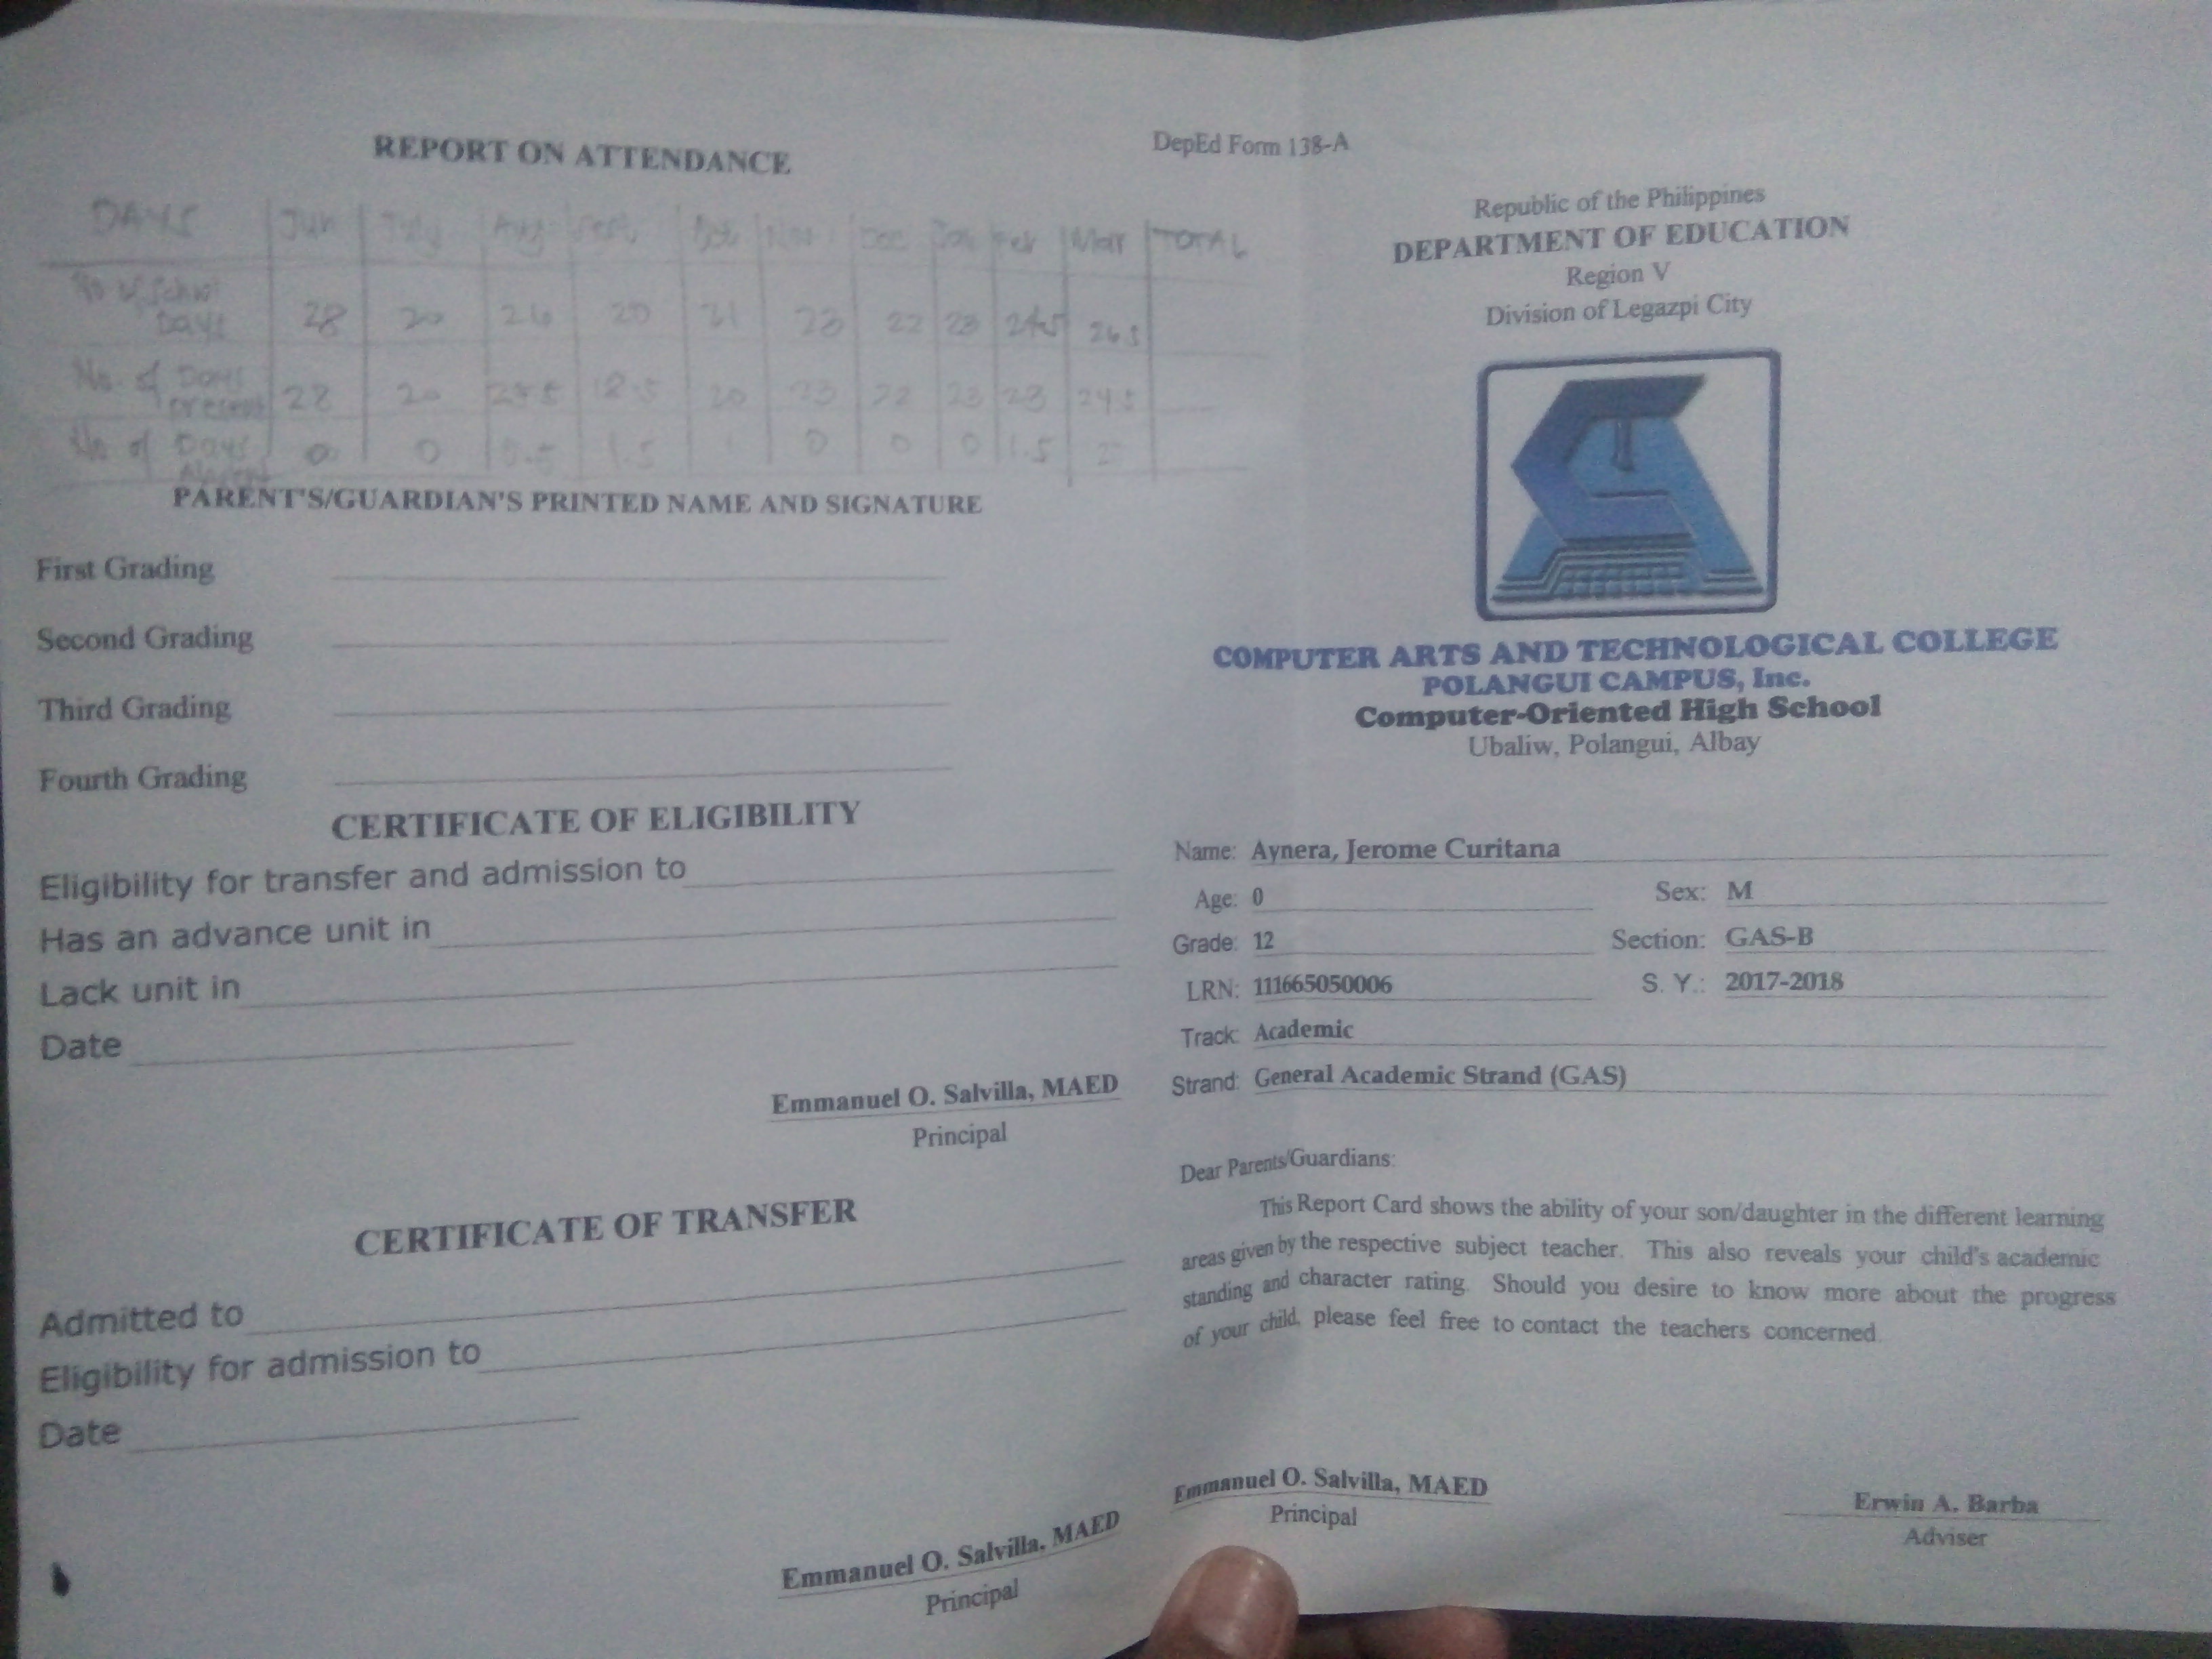 REPORT ON ATTENDANCE
DAYS Jun July Aug Sept Oct Nov Dec Jan Feb Mar TOTAL
No of School Days 28 20 26 20 21 23 22 23 24.5 26.5
No. of Days present 28 20 18.5 20 23 22 23 23 24.5
No. of Days Absent 0 0 0.5 1.5 1 0 0 0 1.5
PARENT'S/GUARDIAN'S PRINTED NAME AND SIGNATURE
First Grading
Second Grading
Third Grading
Fourth Grading
CERTIFICATE OF ELIGIBILITY
Eligibility for transfer and admission to
Has an advance unit in
Lack unit in
Date
Emmanuel O. Salvilla, MAED
Principal
CERTIFICATE OF TRANSFER
Admitted to
Eligibility for admission to
Date
Emmanuel O. Salvilla, MAED
Principal
DepEd Form 138-A
Republic of the Philippines
DEPARTMENT OF EDUCATION
Region V
Division of Legazpi City
COMPUTER ARTS AND TECHNOLOGICAL COLLEGE
POLANGUI CAMPUS, Inc.
Computer-Oriented High School
Ubaliw, Polangui, Albay
Name: Aynera, Jerome Curitana
Age: 0 Sex: M
Grade: 12 Section: GAS-B
LRN: 111665050006 S. Y.: 2017-2018
Track: Academic
Strand: General Academic Strand (GAS)
Dear Parents/Guardians:
This Report Card shows the ability of your son/daughter in the different learning
areas given by the respective subject teacher. This also reveals your child's academic
standing and character rating. Should you desire to know more about the progress
of your child, please feel free to contact the teachers concerned.
Emmanuel O. Salvilla, MAED
Principal
Erwin A. Barba
Adviser